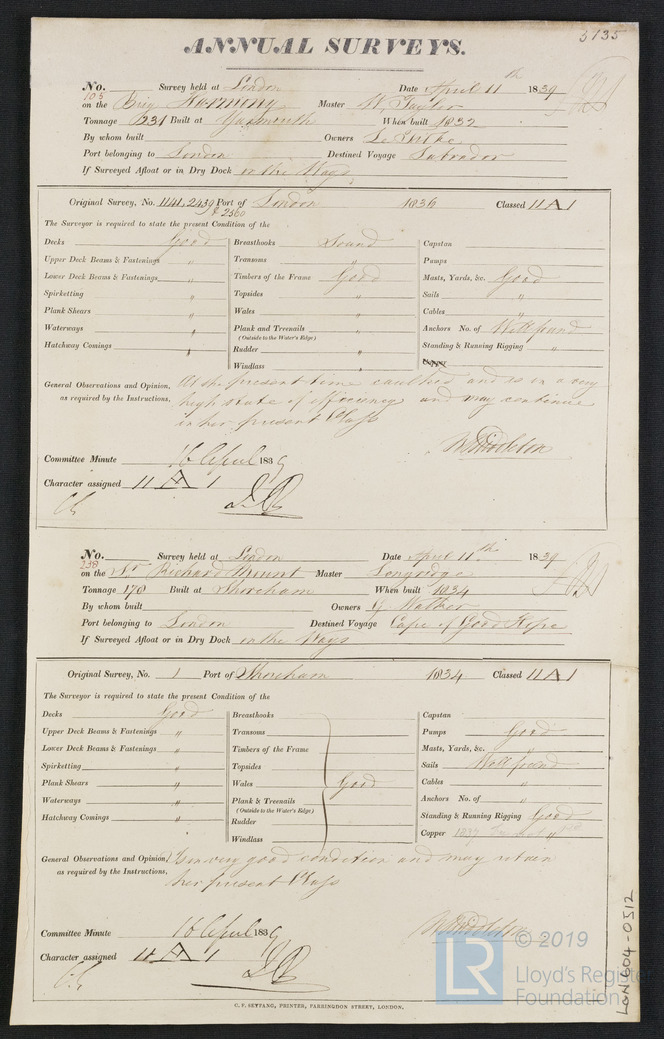 5135
ANNUAL SURVEYS.
No. 103 Survey held at London Date April 11th 1839
on the Brig Harmony Master W. Taylor
Tonnage 231 Built at Yarmouth When built 1832
By whom built Owners
Port belonging to London Destined Voyage Labrador
If Surveyed Afloat or in Dry Dock in the Ways
Original Survey, No. 1141, 2439 Port of London 1836 Classed 11 A 1
& 2560
The Surveyor is required to state the present Condition of the
Decks Good
Upper Deck Beams & Fastenings "
Lower Deck Beams & Fastenings "
Spirketting "
Plank Shears "
Waterways "
Hatchway Comings "
Breasthooks Sound
Transoms "
Timbers of the Frame Good
Topsides "
Wales "
Plank and Treenails "
(Outside to the Water's Edge)
Rudder "
Windlass "
Capstan
Pumps
Masts, Yards, &c. Good
Sails "
Cables "
Anchors No. of Well found
Standing & Running Rigging "
Copper
General Observations and Opinion, At the present time caulked and is in a very
as required by the Instructions, high state of efficiency and may continue
in her present Class
W Middleton
Committee Minute 16 April 1839
Character assigned 11 A 1
No. 238 Survey held at London Date April 11th 1839
on the Sr. Richard Mount Master Longridge
Tonnage 170 Built at Shoreham When built 1834
By whom built Owners G. Walker
Port belonging to London Destined Voyage Cape of Good Hope
If Surveyed Afloat or in Dry Dock in the Ways
Original Survey, No. 1 Port of Shoreham 1834 Classed 11 A 1
The Surveyor is required to state the present Condition of the
Decks Good
Upper Deck Beams & Fastenings "
Lower Deck Beams & Fastenings "
Spirketting "
Plank Shears "
Waterways "
Hatchway Comings "
Breasthooks
Transoms
Timbers of the Frame
Topsides
Wales Good
Plank & Treenails
(Outside to the Water's Edge)
Rudder
Windlass
Capstan
Pumps Good
Masts, Yards, &c. "
Sails Well found
Cables "
Anchors No. of "
Standing & Running Rigging Good
Copper 1837
General Observations and Opinion, Is in very good condition and may retain
as required by the Instructions, her present Class
W Middleton
Committee Minute 16 April 1839
Character assigned 11 A 1
C. F. SEYFANG, PRINTER, FARRINGDON STREET, LONDON.
LON604-0512
LR
© 2019
Lloyd's Register
Foundation